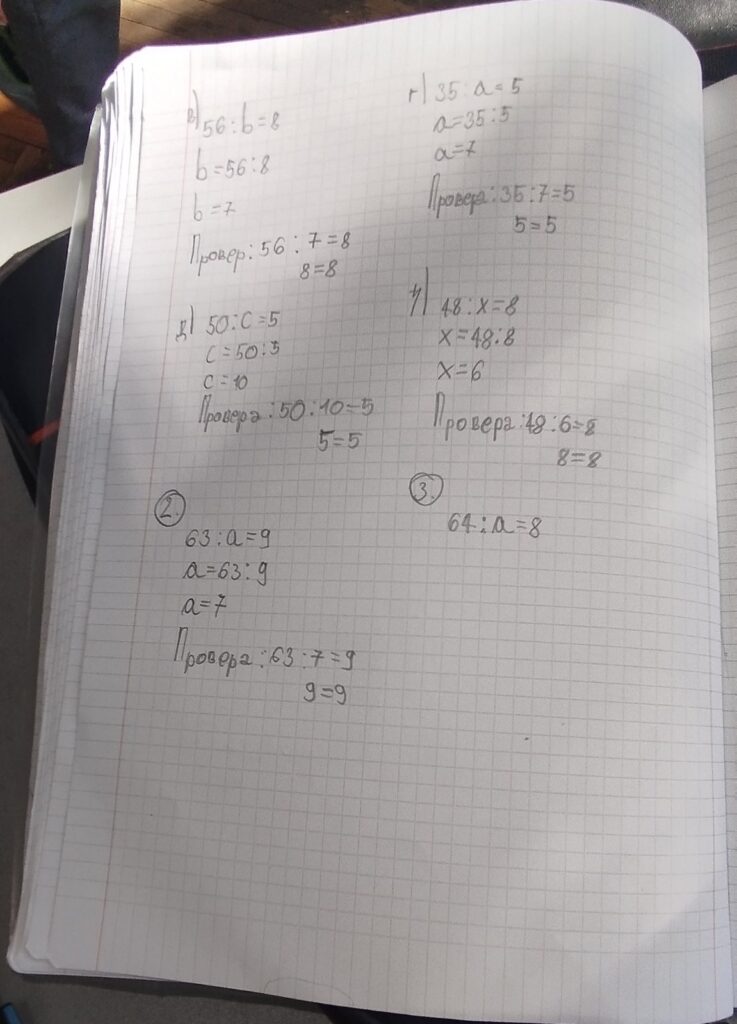 в) 56:b=8
b=56:8
b=7
Провер: 56:7=8
8=8
г) 35:a=5
a=35:5
a=7
Провера: 35:7=5
5=5
д) 50:c=5
c=50:5
c=10
Провера: 50:10=5
5=5
ђ) 48:x=8
x=48:8
x=6
Провера: 48:6=8
8=8
2.
63:a=9
a=63:9
a=7
Провера: 63:7=9
9=9
3.
64:a=8